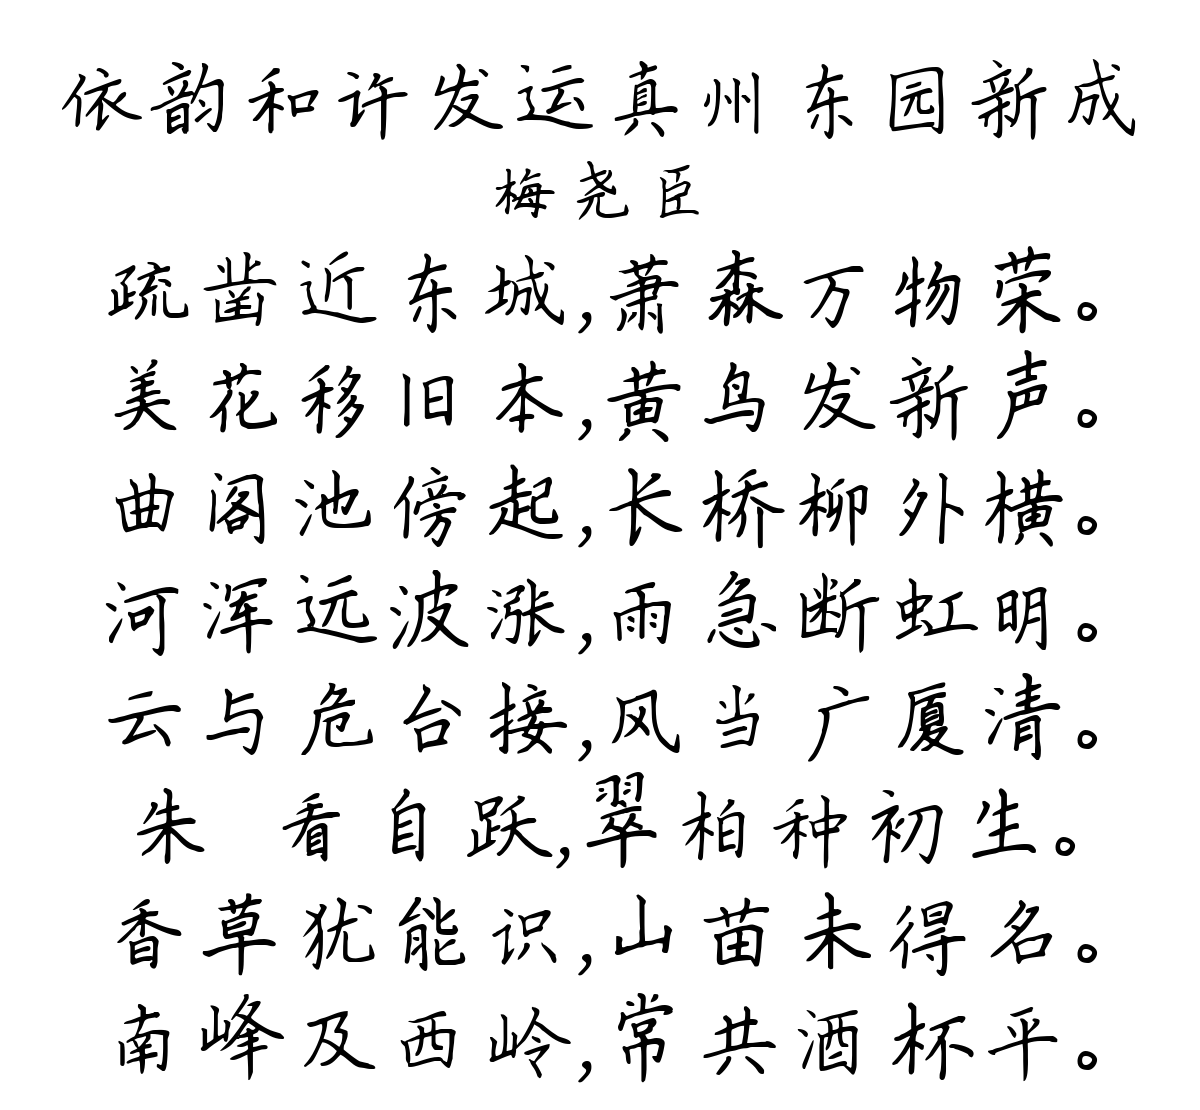 依韵和许发运真州东园新成
梅尧臣
疏凿近东城,萧森万物荣。
美花移旧本,黄鸟发新声。
曲阁池傍起,长桥柳外横。
河浑远波涨,雨急断虹明。
云与危台接,风当广厦清。
朱 看自跃,翠柏种初生。
香草犹能识,山苗未得名。
南峰及西岭,常共酒杯平。